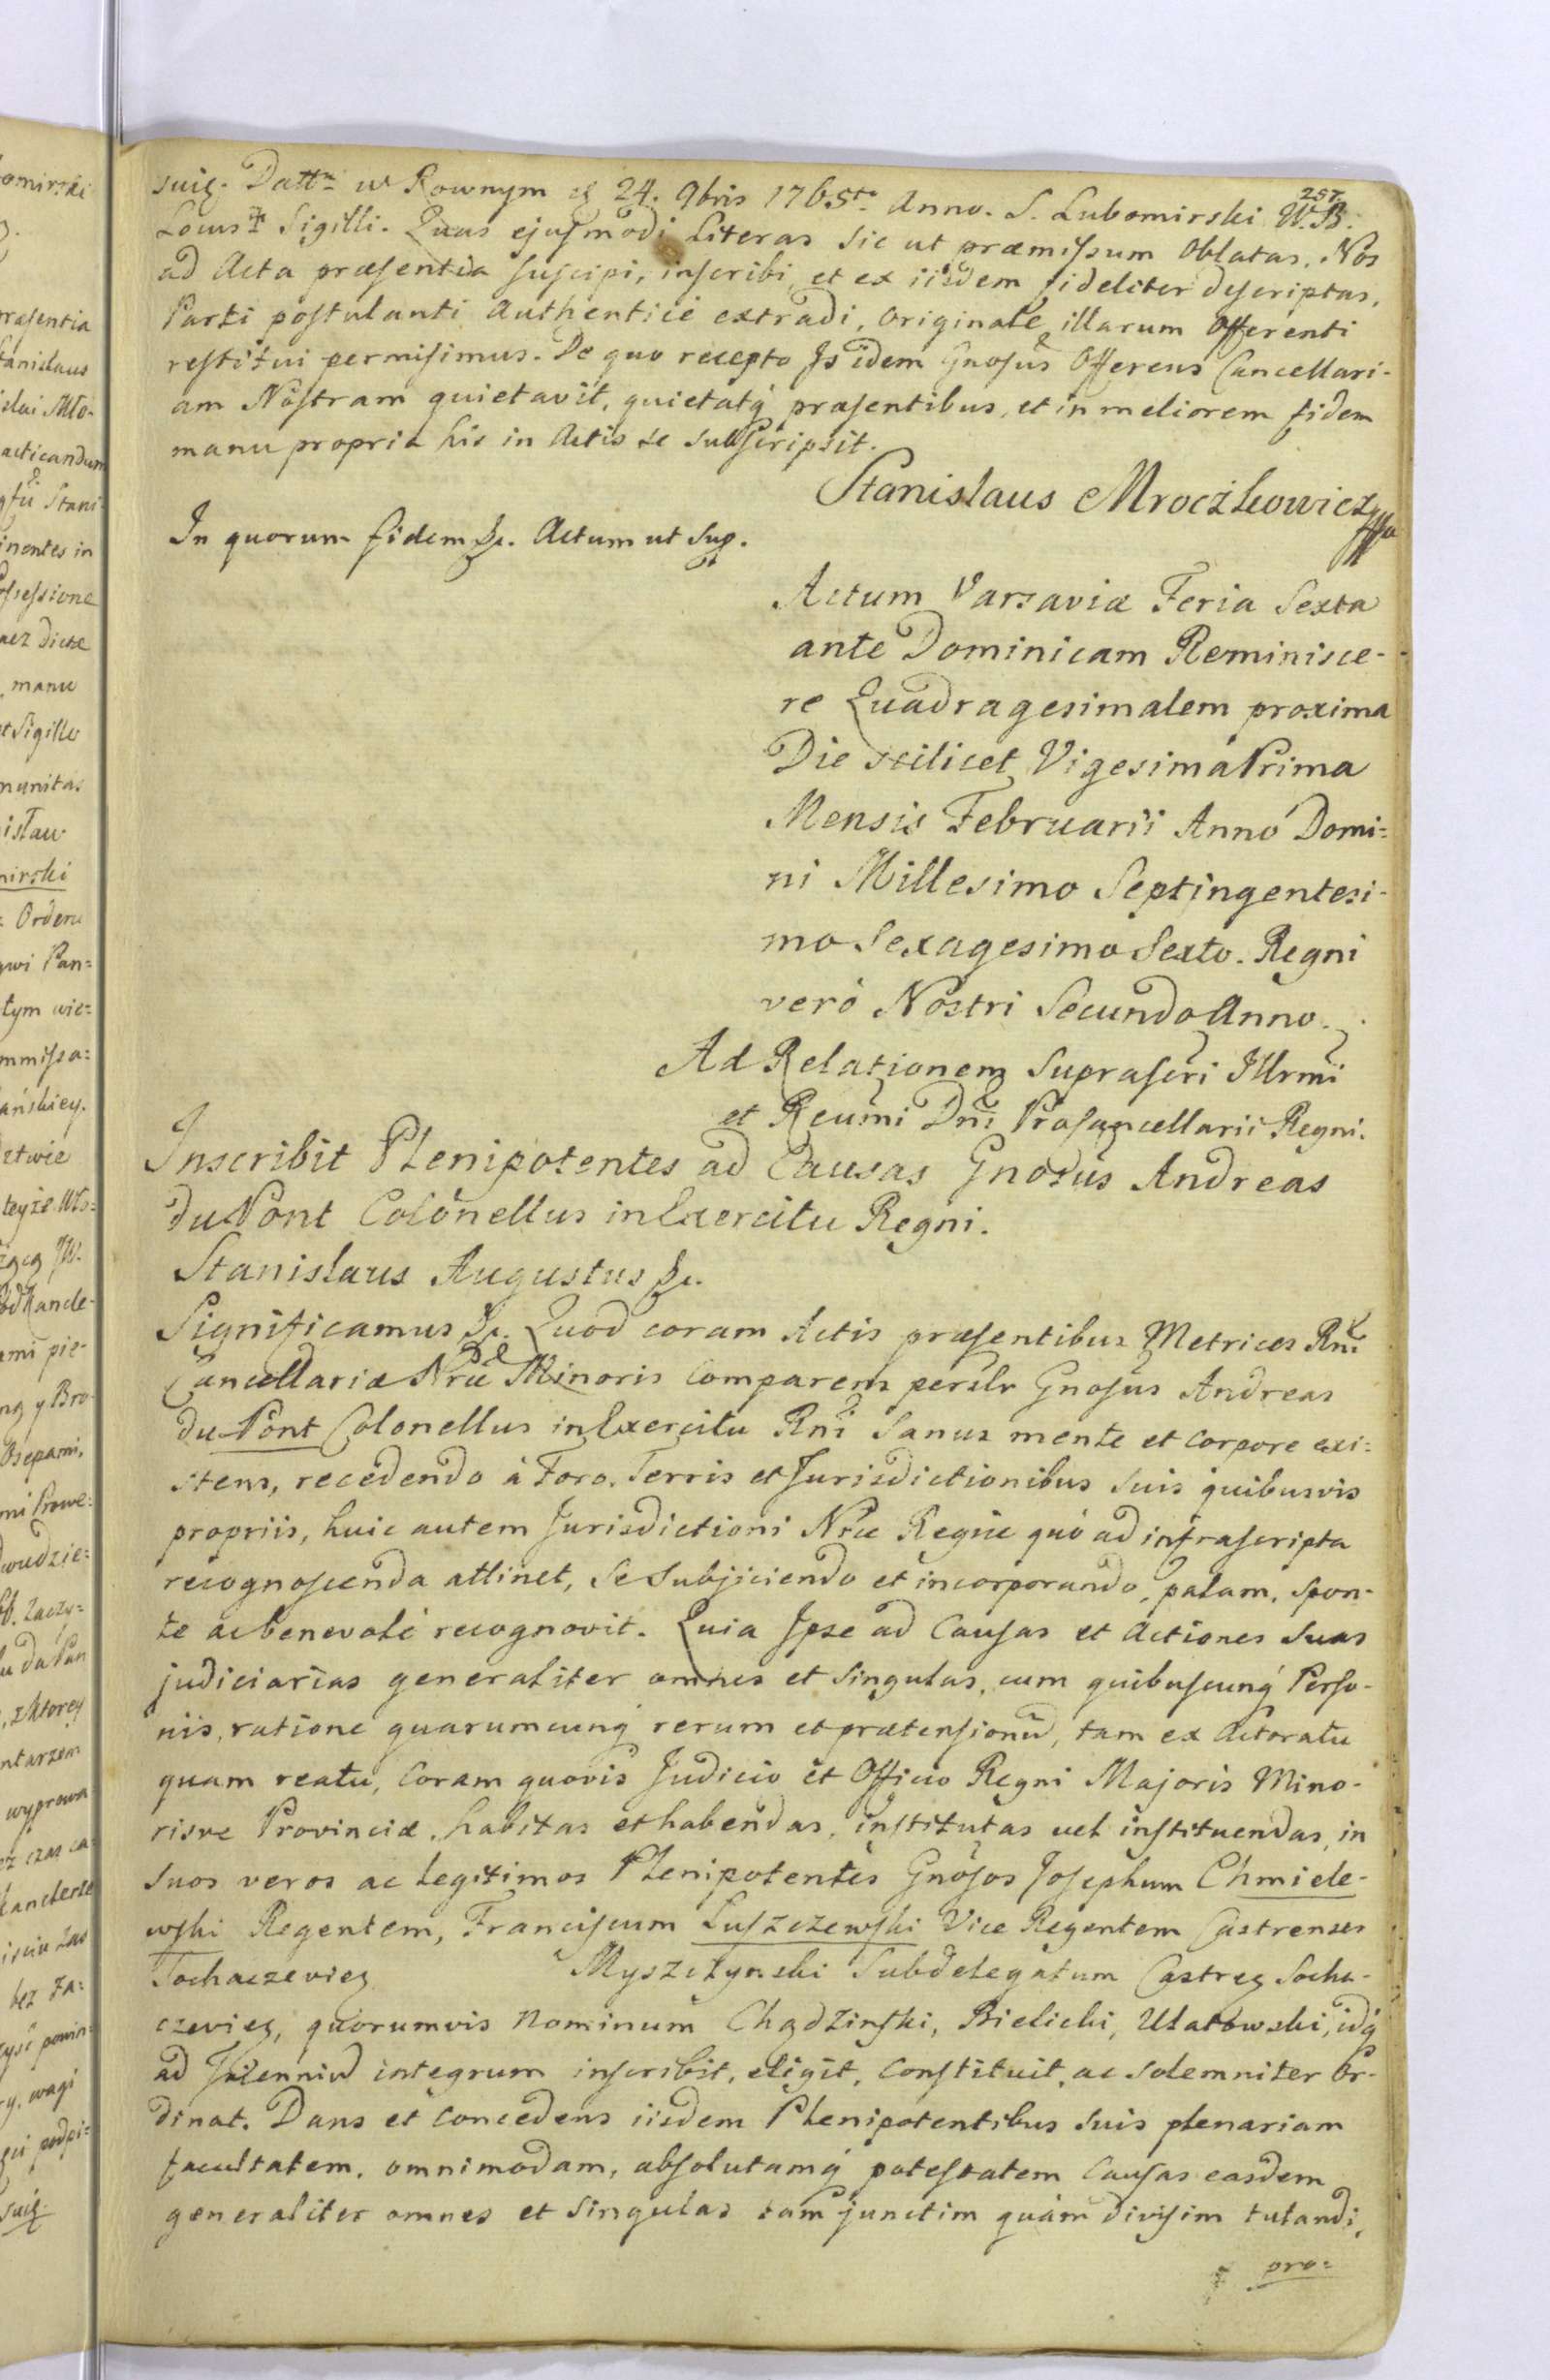 257.
suię. Datt̃ w Rownym d 24. 9bris 1765to Anno. S. Lubomirski W.B.
Locus Sigilli. Quas ejusmodi Literas sic ut præmissum Oblatas, Nos
ad Acta præsentia suscipi, inscribi, et ex iisdem fideliter descriptas,
Parti postulanti Authentice extradi, Originale illarum Offerenti
restitui permisimus. De quo recepto Is idem Gnosus Offerens Cancellari-
am Nostram quietavit, quietatq́ præsentibus, et in meliorem fidem
manu propria his in Actis se subscripsit.
Stanislaus Mroczkowicz
In quorum fidem &c. Actum ut Sup.
Actum Varsaviæ Feria Sexta
ante Dominicam Reminisce-
re Quadragesimalem proxima
Die scilicet Vigesima Prima
Mensis Februarii Anno Domi=
ni Millesimo Septingentesi-
mo Sexagesimo Sexto. Regni
verò Nostri Secundo Anno.
Ad Relationem Suprascri Illrmi
et Reumi Dni Procancellarii Regni.
Inscribit Plenipotentes ad Causas Gnosus Andreas
du Pont Colonellus in Exercitu Regni.
Stanislaus Augustus &c.
Significamus &c. Quod coram Actis præsentibus Metrices Rni
Cancellariæ Nræ Minoris Comparens persolr Gnosus Andreas
du Pont Colonellus in Exercitu Rni Sanus mente et corpore exi=
stens, recedendo à Foro, Terris et Jurisdictionibus suis quibusvis
propriis, huic autem Jurisdictioni Nræ Regiæ quò ad infrascripta
recognoscenda attinet, se subjiciendo et incorporando, palam, spon-
te ac benevolè recognovit. Quia Ipse ad Causas et Actiones suas
judiciarias generaliter omnes et singulas, cum quibuscunq́ Perso-
nis, ratione quarumcunq́ rerum et prætensionũ, tam ex Actoratu
quam reatu, coram quovis Judicio et Officio Regni Majoris Mino-
risve Provinciæ, habitas et habendas, institutas vel instituendas, in
suos veros ac legitimos Plenipotentes Gnosos Josephum Chmiele-
wski Regentem, Franciscum Luszczewski Vice Regentem Castrenses
Sochaczevien Myszczynski Subdelegatum Castren Socha-
czevien, quorumvis Nominum Chądzinski, Bielicki, Ulatowski, idq́
ad Trienniũ integrum inscribit, eligit, constituit, ac solemniter Or-
dinat. Dans et concedens iisdem Plenipotentibus suis plenariam
facultatem, omnimodam, absolutamq́ potestatem Causas easdem
generaliter omnes et singulas tam junctim quàm divisim tutandi,
pro=